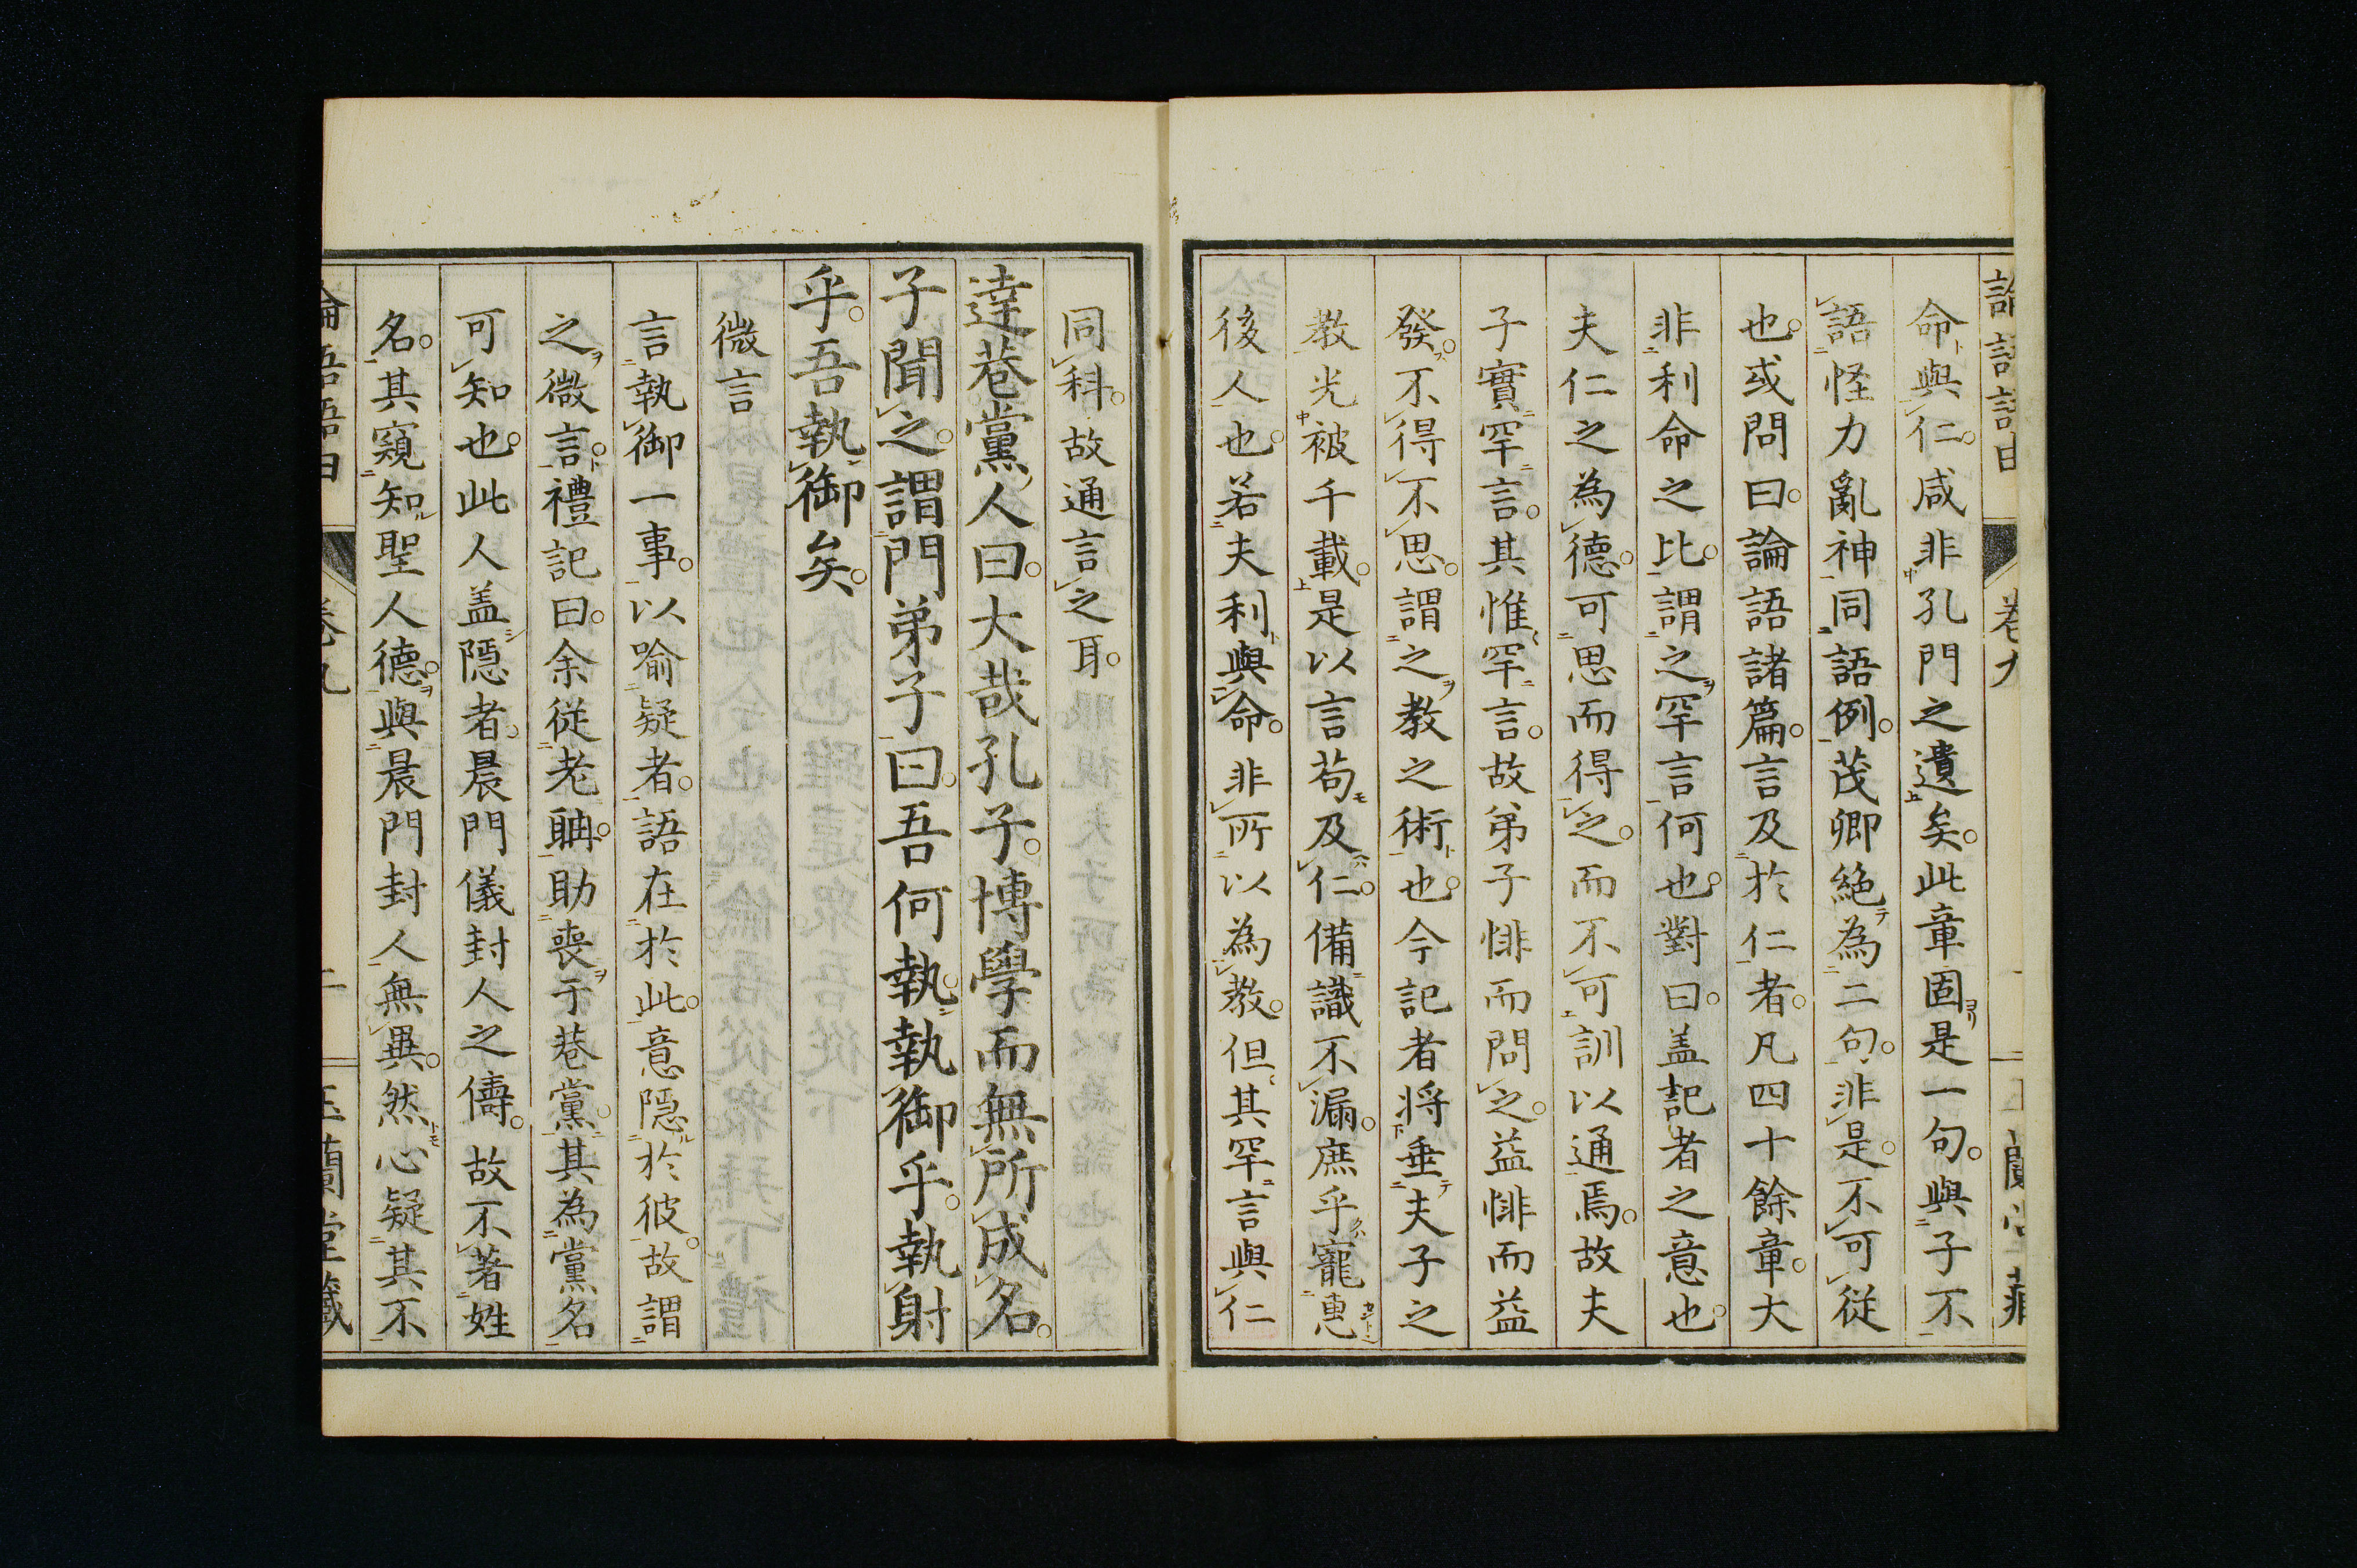 命與仁。咸非孔門之遺矣。此章固是一句。與子不
語怪力亂神同語例。茂卿絕為二句。非是。不可從
也。或問曰。論語諸篇。言及於仁者。凡四十餘章。大
非利命之比。謂之罕言何也。對曰。盖記者之意也。
夫仁之為德。可思而得之。而不可訓以通焉。故夫
子實罕言。其惟罕言。故弟子悱而問之。益悱而益
發。不得不思。謂之教之術也。今記者將垂夫子之
教光被千載。是以言苟及仁。備識不漏。庶乎寵惠
後人也。若夫利與命。非所以為教。但其罕言與仁
同科。故通言之耳。
達巷黨人曰。大哉孔子。博學而無所成名。
子聞之。謂門弟子曰。吾何執。執御乎。執射
乎。吾執御矣。
微言
言執御一事。以喻疑者。語在於此。意隱於彼。故謂
之微言。禮記曰。余從老聃。助喪于巷黨。其為黨名
可知也。此人盖隱者。晨門儀封人之儔。故不著姓
名。其窺知聖人德。與晨門封人無異。然心疑其不
論語語由
卷九
玉蘭堂藏